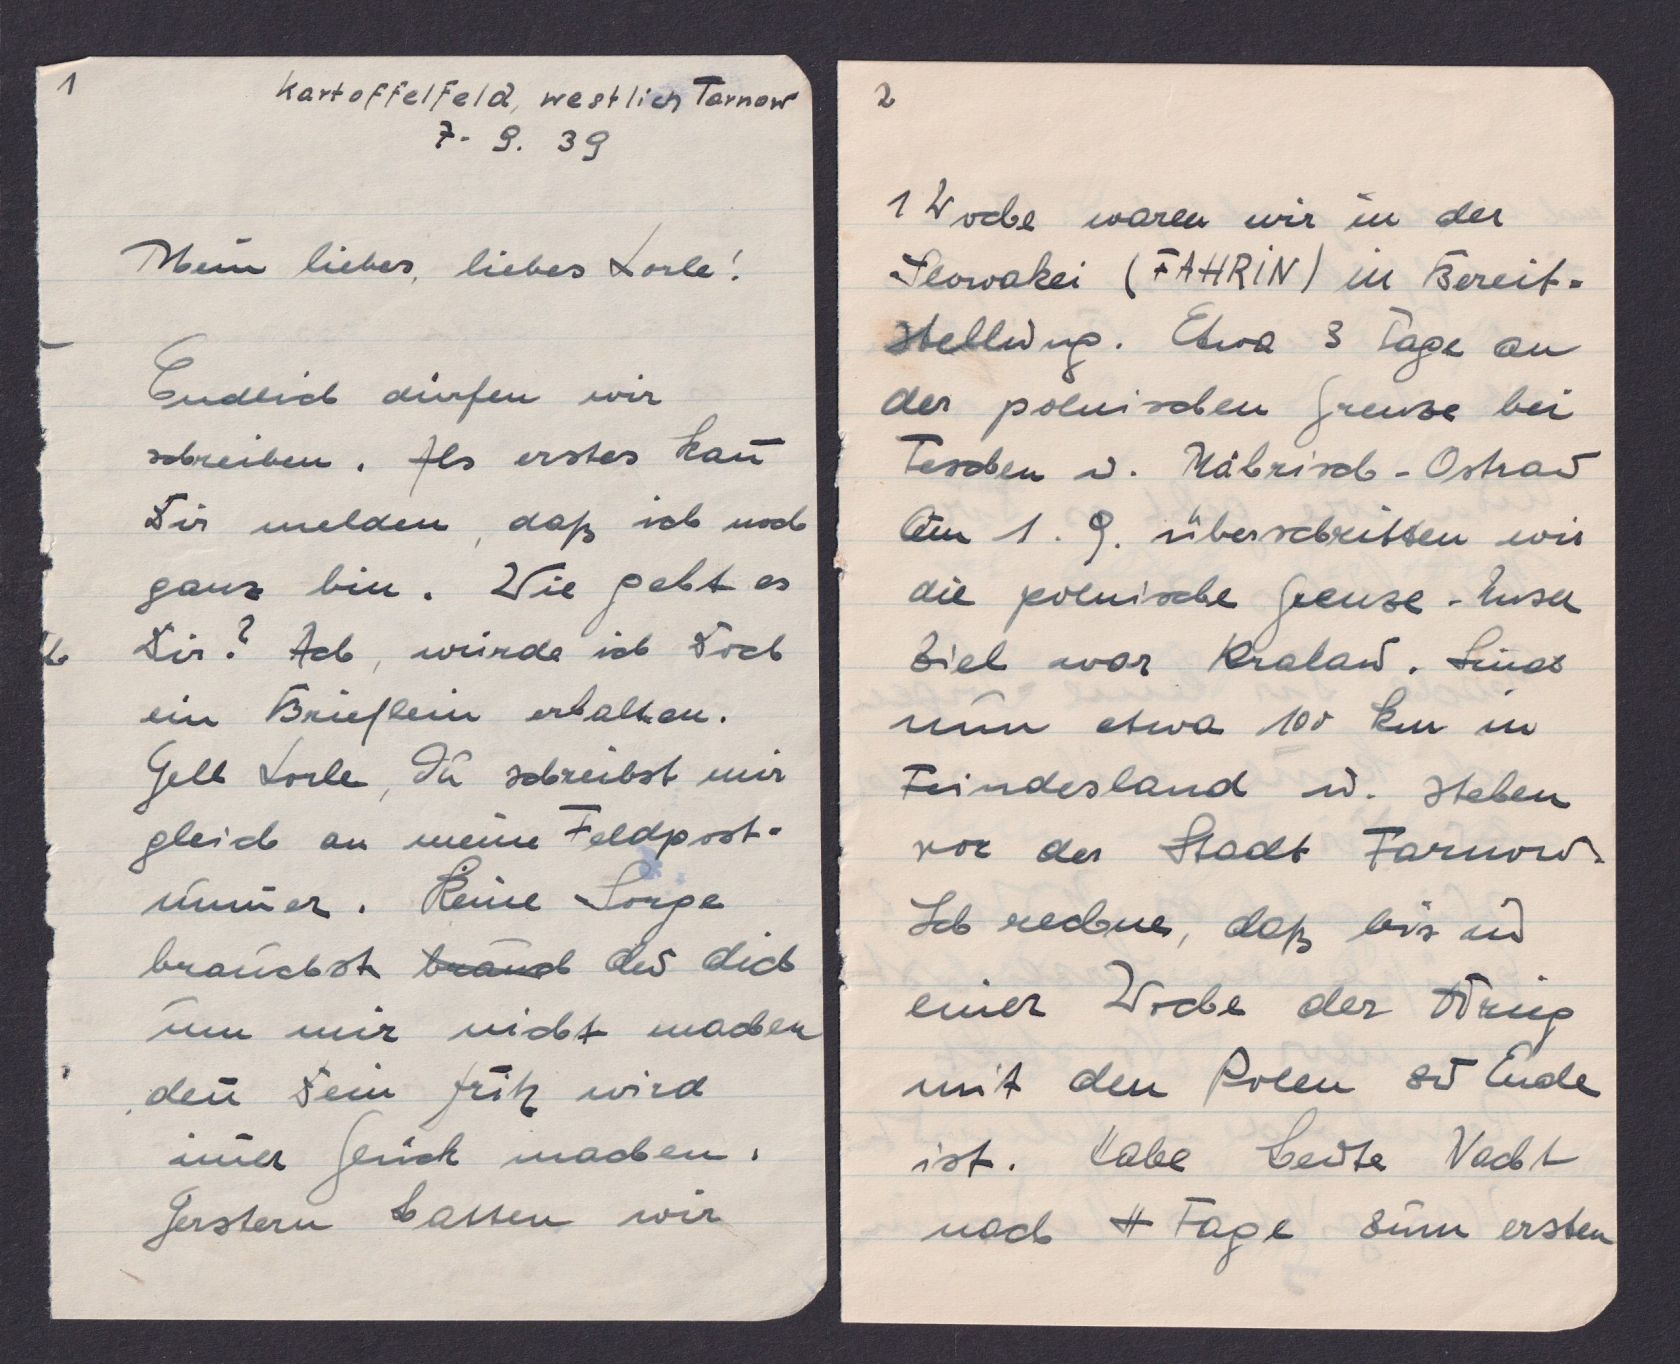 1
Kartoffelfeld, westlich Tarnow
7. 9. 39
Mein liebes, liebes Lorle!
Endlich dürfen wir
schreiben. Als erstes kan̄
Dir melden, daß ich noch
ganz bin. Wie geht es
Dir? Ach, würde ich Doch
ein Brieflein erhalten.
Gell Lorle, Du schreibst mir
gleich an meine Feldpost-
num̄er. Keine Sorge
brauchst brauch du dich
um mir nicht machen
den̄ Dein Fritz wird
im̄er Glück machen.
Gerstern hatten wir
2
1 Woche waren wir in der
Slowakei (FAHRIN) in Bereit-
stellung. Etwa 3 Tage an
der polnischen Grenze bei
Teschen u. Mährisch-Ostrau
Am 1. 9. überschritten wir
die polnische Grenze - Unser
Ziel war Krakau. Sind
nun etwa 100 km in
Feindesland u. stehen
vor der Stadt Tarnow.
Ich rechne, daß bis in
einer Woche der Krieg
mit den Polen zu Ende
ist. Habe heute Nacht
nach 4 Tage zum ersten